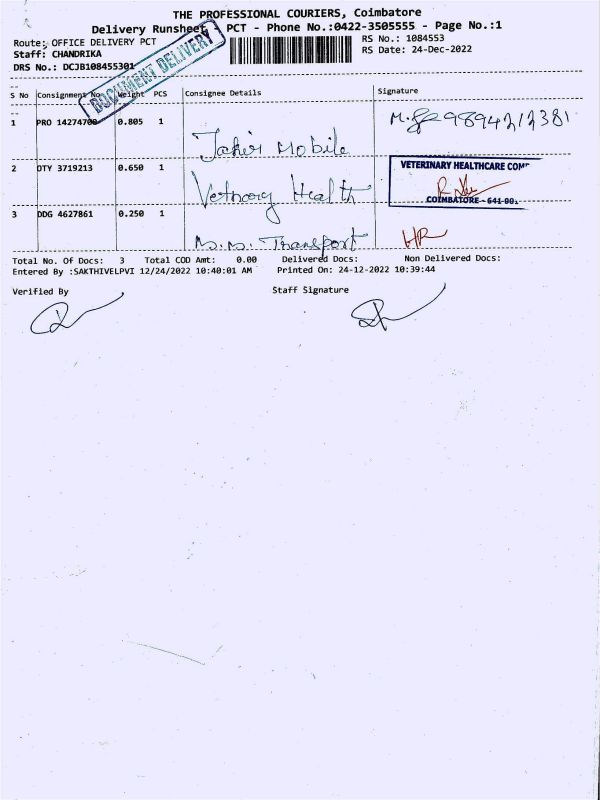 THE PROFESSIONAL COURIERS, Coimbatore
Delivery Runsheet PCT - Phone No.:0422-3505555 - Page No.:1
Route: OFFICE DELIVERY PCT
RS No.: 1084553
Staff: CHANDRIKA
RS Date: 24-Dec-2022
DRS No.: DCJB108455301
DOCUMENT DELIVERY
S No Consignment No. Weight PCS Consignee Details Signature
1 PRO 14274700 0.805 1 Jaher Mobile 9894212381
2 OTY 3719213 0.650 1 Vetnary Health
VETERINARY HEALTHCARE
COIMBATORE - 641
3 DDG 4627861 0.250 1 M.M. Transport HR
Total No. Of Docs: 3 Total COD Amt: 0.00 Delivered Docs: Non Delivered Docs:
Entered By :SAKTHIVELPVI 12/24/2022 10:40:01 AM Printed On: 24-12-2022 10:39:44
Verified By Staff Signature